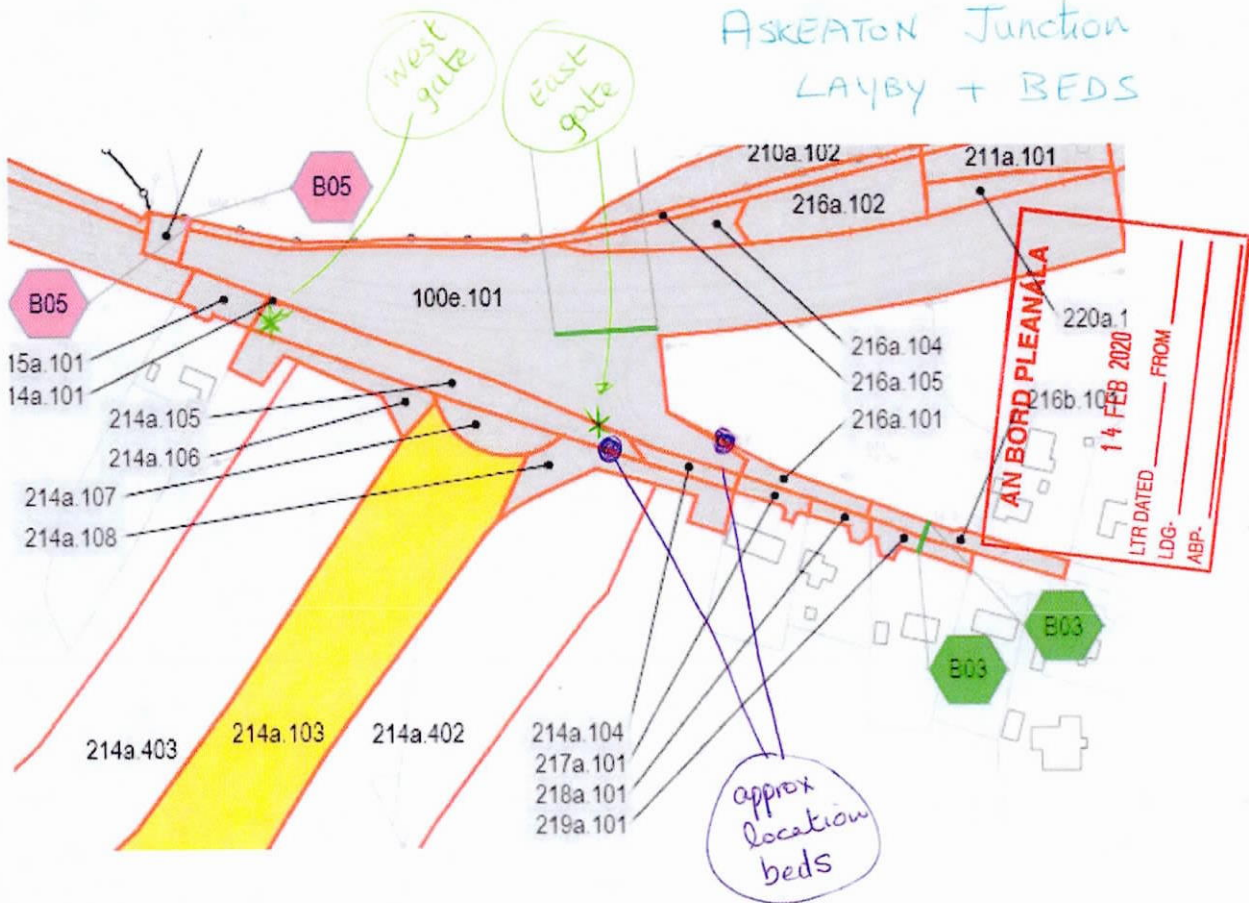 ASKEATON Junction
LAYBY + BEDS
west
gate
East
gate
B05
B05
210a.102
211a.101
216a.102
100e.101
15a.101
14a.101
214a.105
214a.106
214a.107
214a.108
216a.104
216a.105
216a.101
220a.1
216b.10
AN BORD PLEANÁLA
14 FEB 2020
LTR DATED FROM
LDG-
ABP-
B03
B03
214a.403
214a.103
214a.402
214a.104
217a.101
218a.101
219a.101
approx
location
beds